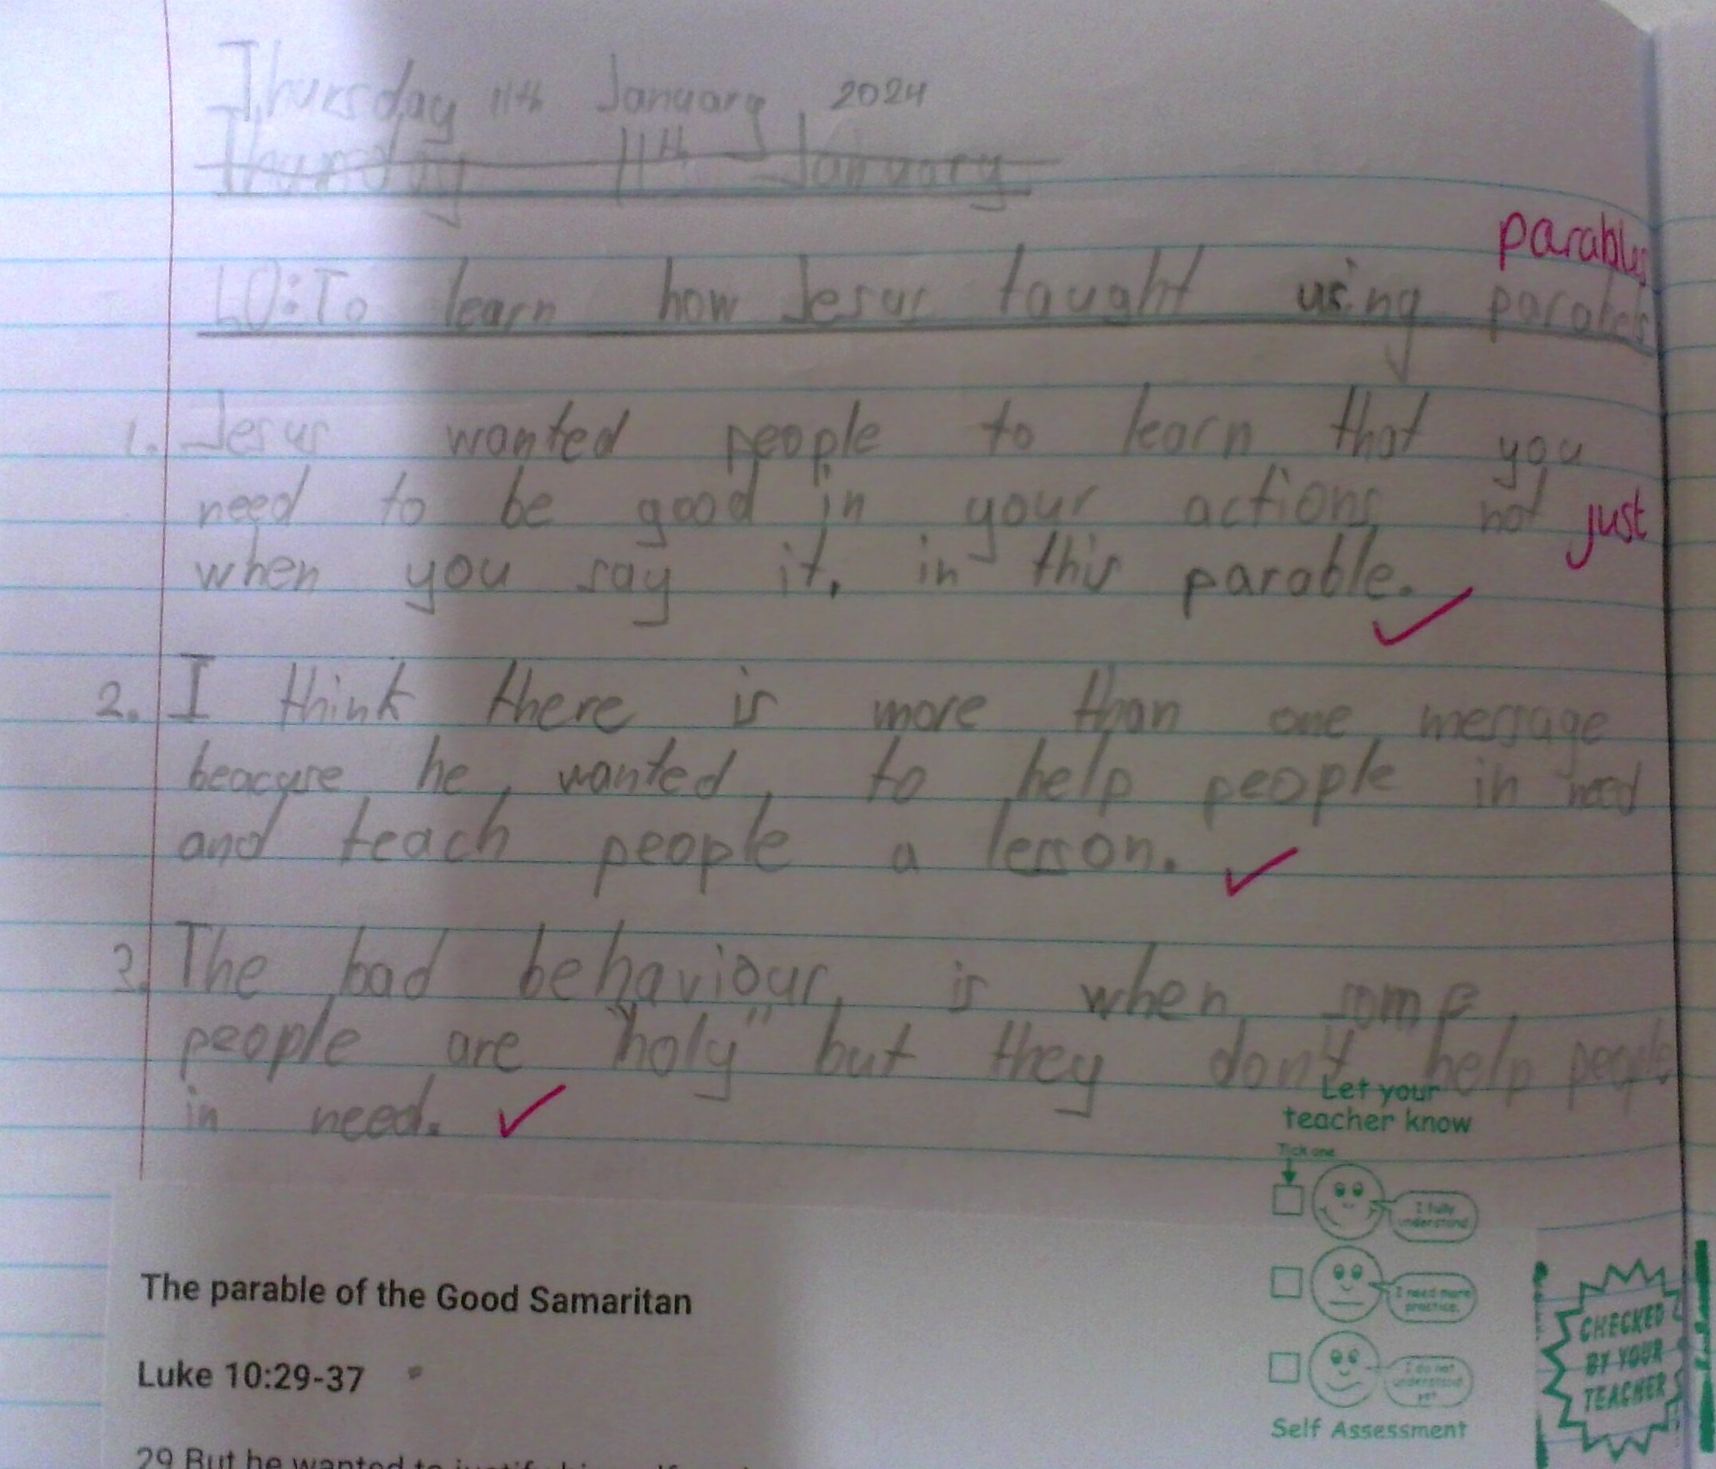 Thursday 11th January 2024
Thursday 11th January
LO: To learn how Jesus taught using parabels
parables
1. Jesus wanted people to learn that you
need to be good in your actions not just
when you say it, in this parable.
2. I think there is more than one message
beacuse he wanted to help people in need
and teach people a lesson.
3. The bad behaviour is when some
people are "holy" but they don't help people
in need.
Let your
teacher know
Tick one
I fully
understand
I need more
practice.
I do not
understand
yet
Self Assessment
CHECKED
BY YOUR
TEACHER
The parable of the Good Samaritan
Luke 10:29-37
29 But he wanted to justify himself